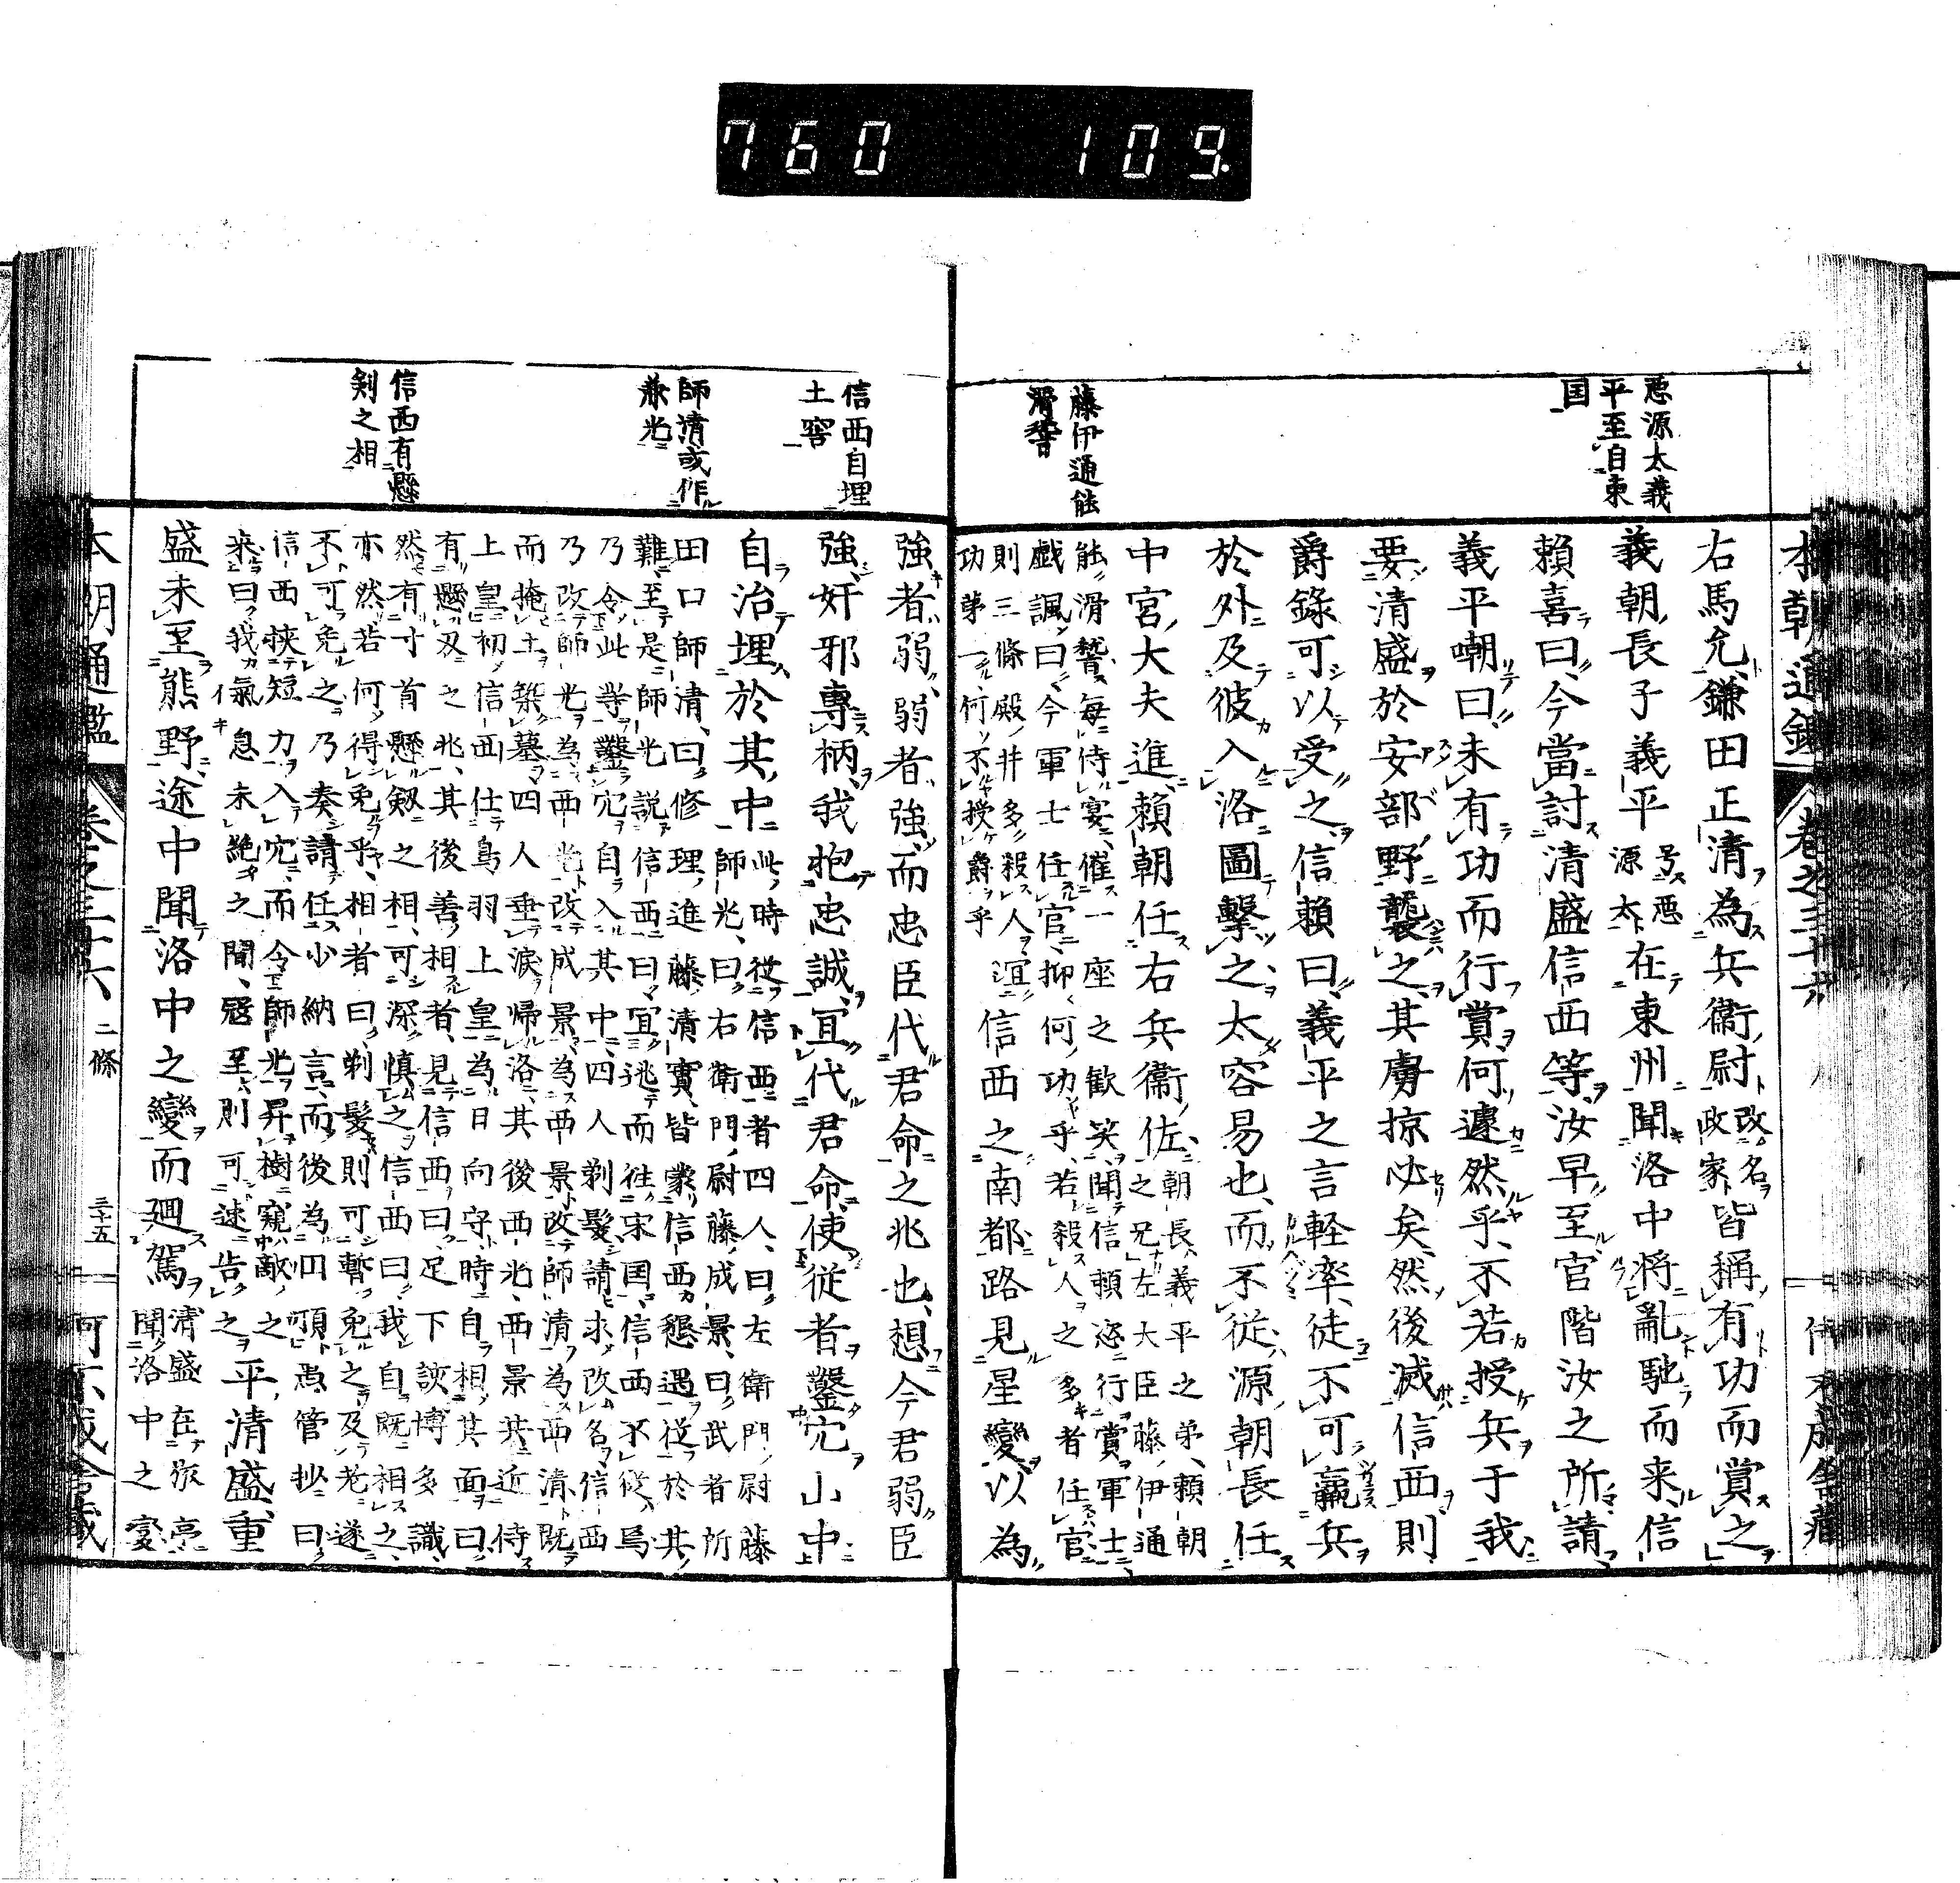 760 109
悪源太義
平至自東
国
藤伊通能
滑稽
本朝通鑑 卷之三十六
右馬允鎌田正清為兵衞尉改名政家皆稱有功而賞之
義朝長子義平号悪源太在東州聞洛中將亂馳而来信
頼喜曰今當討清盛信西等汝早至官階汝之所請
義平嘲曰未有功而行賞何遽然乎不若授兵于我
要清盛於安部野襲之其虜掠必矣然後滅信西則
爵錄可以受之信頼曰義平之言軽率徒不可羸兵
於外及彼入洛圖擊之太容易也而不従源朝長任
中宮大夫進頼朝任右兵衞佐朝長義平之弟頼朝之兄左大臣藤伊通
能滑稽毎侍宴催一座之歓笑聞信頼恣行賞軍士
戯諷曰今軍士任官抑何功乎若殺人之多者任官
則三條殿井多殺人宜
功第一何不授爵乎
信西之南都路見星變以為
信西自埋
土窖
師清或作
兼光
信西有懸
剣之相
強者弱弱者強而忠臣代君命之兆也想今君弱臣
強奸邪専柄我抱忠誠宜代君命使従者鑿穴山中
自治埋於其中此時従信西者四人曰左衛門尉藤
師光曰右衛門尉藤成景曰武者所
田口師清曰修理進藤清實皆蒙信西懇遇従於其
難至是師光説信西曰宜逃而往宋国信西不従焉
乃令此等鑿穴自入其中四人剃髪請求改名信西
乃改師光為西光改成景為西景改師清為西清既
而掩土築墓四人垂涙帰洛其後西光西景共近侍
上皇初信西仕鳥羽上皇為日向守時自相其面曰
有懸刃之兆其後善相者見信西曰足下談博多識
然有寸首懸剱之相可深慎之信西曰我自既相之
亦然若何得免乎相者曰剃髪則可暫免之及老遂
不可免之乃奏請任小納言而後為
信西挾短力入穴而令師光昇樹窺敵之
来曰我氣息未絶之聞冦至則可速告之
平清盛重
盛未至熊野途中聞洛中之變而廻駕清盛在旅亭
聞洛中之変
本朝通鑑 卷之三十六 二條 三十五